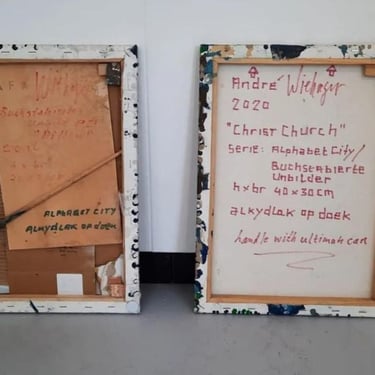 Wiehager
Buchstabierte
2012
ALPHABET CITY
ALKYDLAK OP DOEK
André Wiehager
2020
"Christ Church"
serie: Alphabet City/
Buchstabierte
Unbilder
h x br 40 x 30 cm
alkydlak op doek
handle with ultimate care